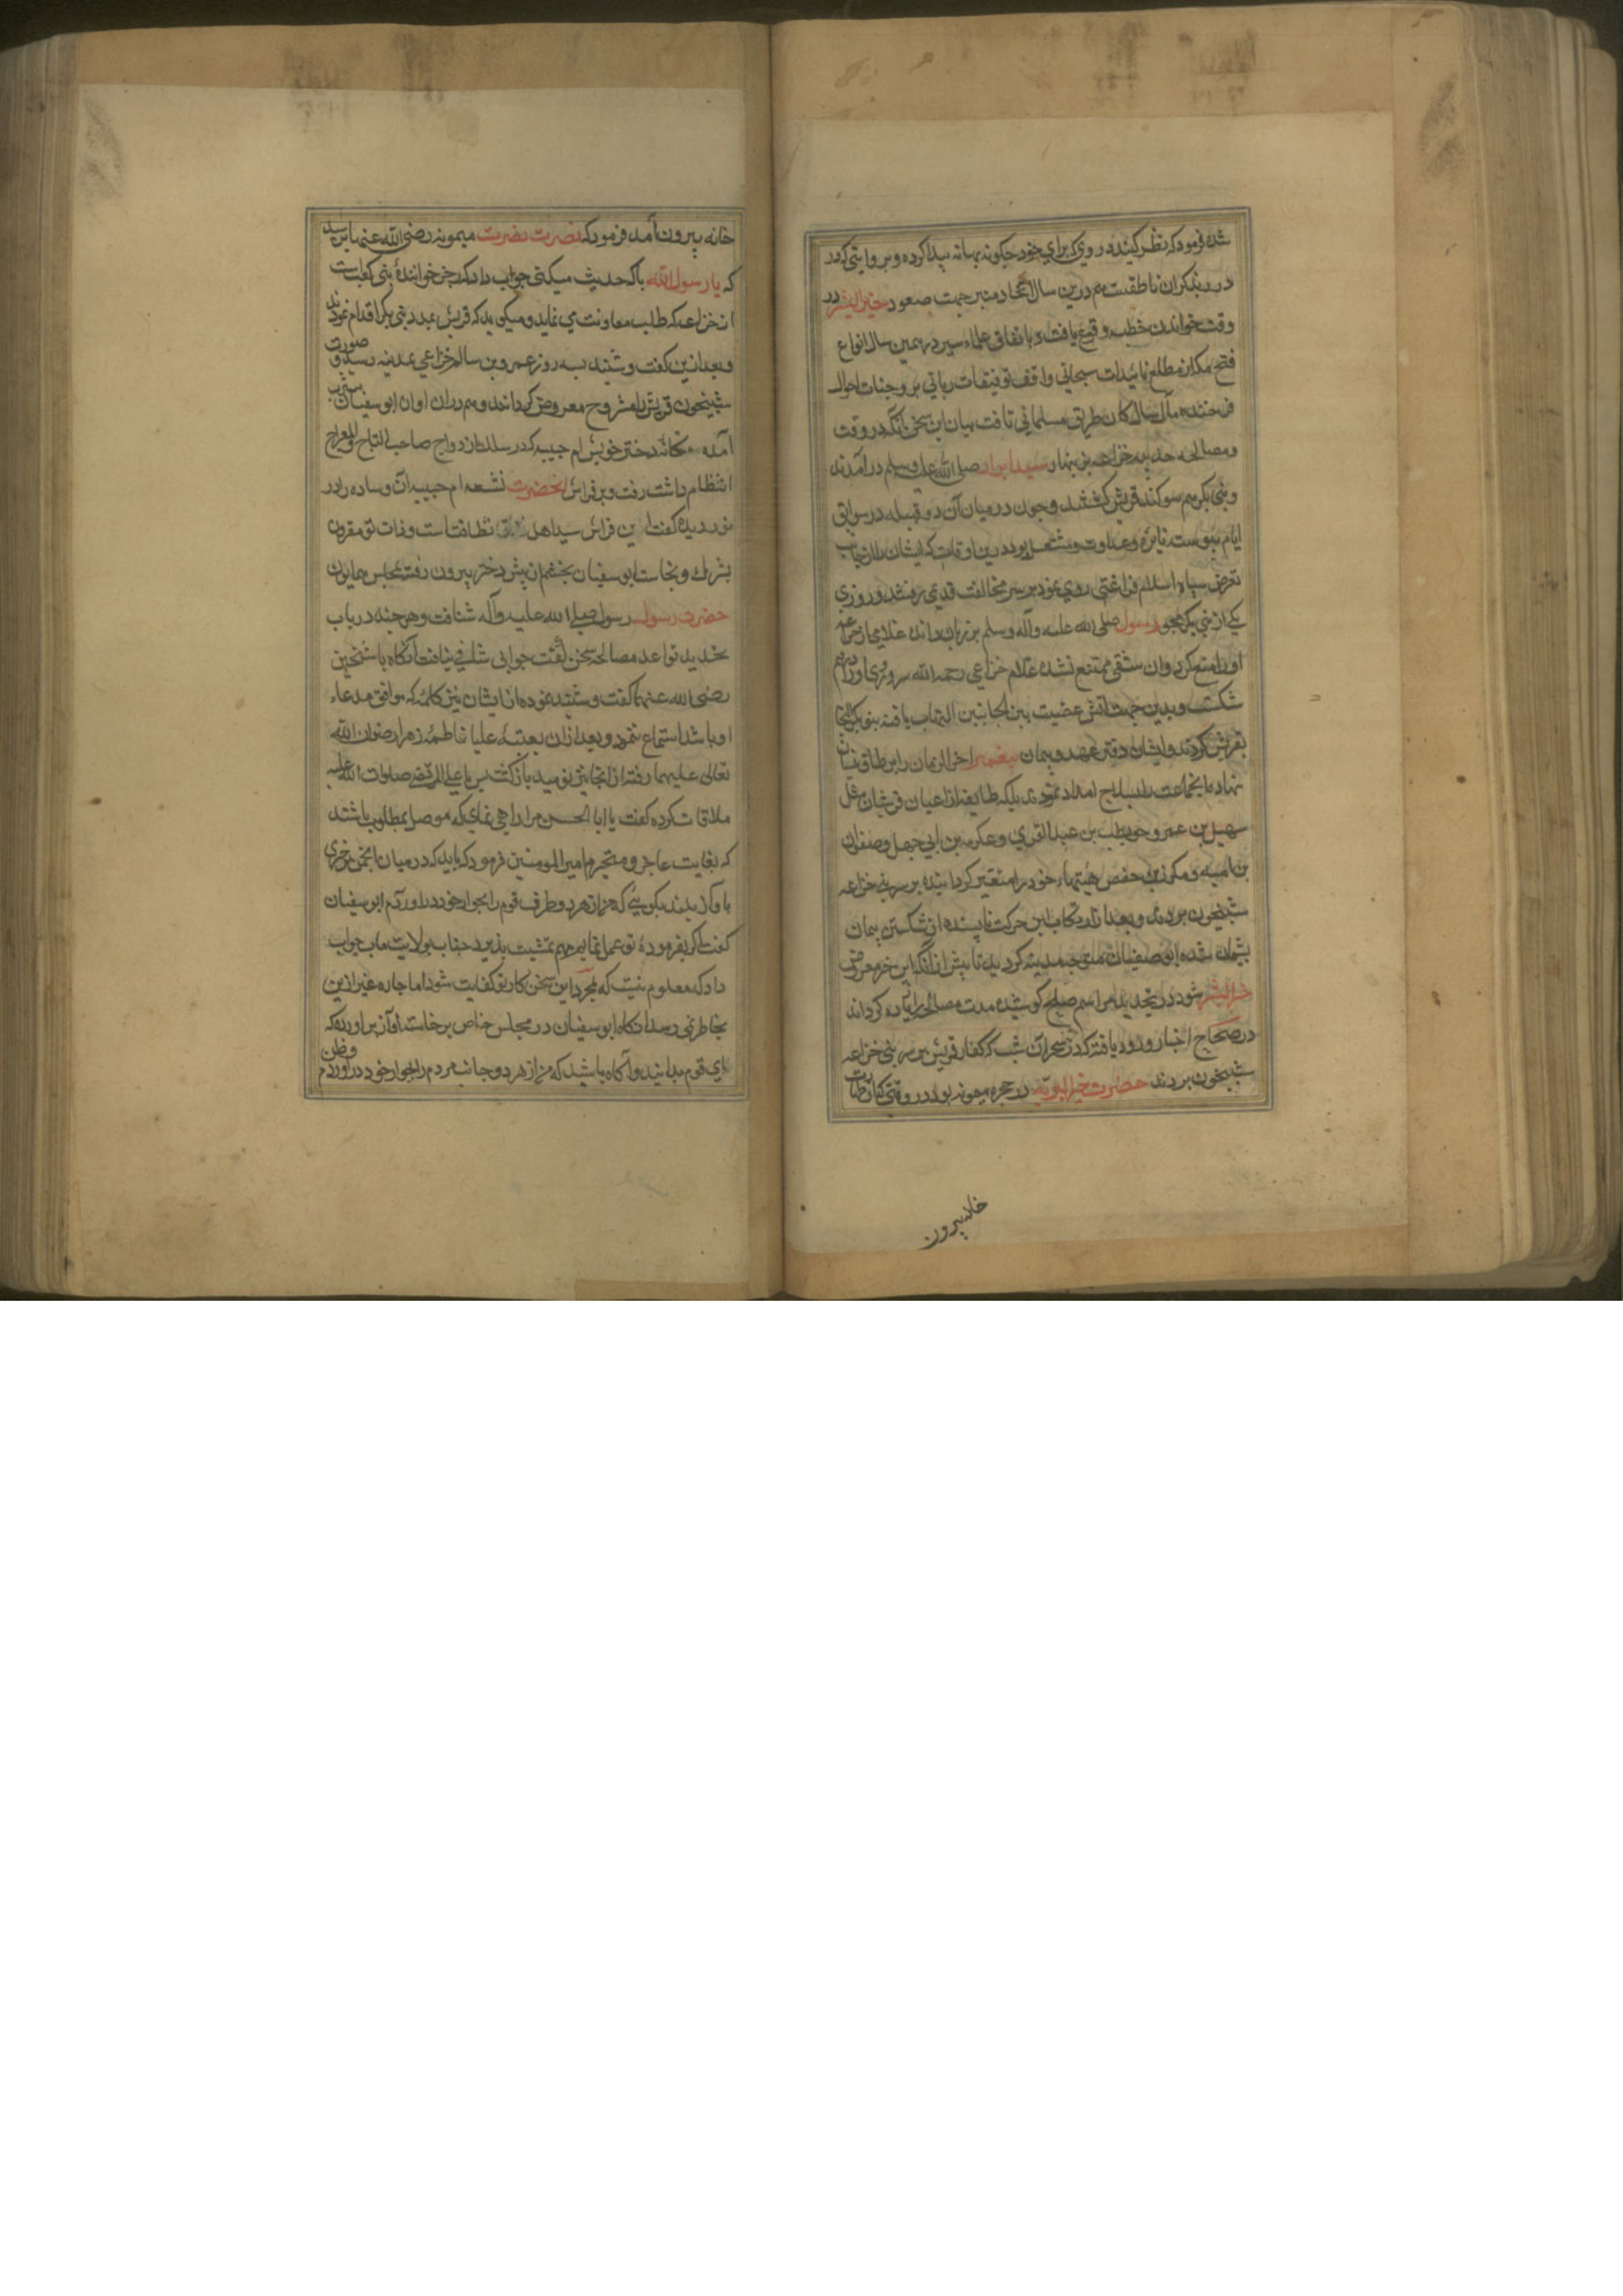 شده فرمود که نظر کنید در وی که برای خود چکونه بهانه پیدا کرده و بروایتی که در
در بند کران ناطقست هم درین سال اتخاد منبر جهت صعود خیر البشر در
وقت خواندن خطبه وقوع یافت و باتفاق علماء سیر در همین سال انواع
فتح مکه از مطلع تائیدات سبحانی واقف توفیقات ربانی بر وجنات احوال
فرخنده مآل سالکان طریق مسلمانی تافت بیان این سخن آنکه در وقت
ومصالحه حدیبیه خزاعه بزینهار سید ابرار صلی الله علیه وسلم در آمدند
وبنی بکر هم سوکند قریش کشتند و چون در میان آن دو قبیله در سوابق
ایام پیوسته نایره وعداوت مشتعل بود درین اوقات که ایشان را از جانب
تعرض سپاه اسلام فراغتی روی نمود بر سر مخالفت قدیمی رفتند و روزی
یکی از بنی بکر بهجو رسول صلی الله علیه وآله وسلم بر زبان راند غلامی از خزاعه
او را منع کرد و ان شقی ممتنع نشده غلام خزاعی رحمه الله سر و روی او در هم
شکست و بدین جهت آتش عصبیت بین الجانبین التهاب یافته بنو بکر التجا
بقریش کردند و ایشان دقتر عهد و پیمان پیغمبر اخر الزمان را بر طاق نسیان
نهاده انجماعت را بسلاح امداد نمودند بلکه طایفه از اعیان قریشان مثل
سهیل بن عمرو حویطب بن عبد القری و عکرمه بن ابی جهل و صفوان
بن امیه و مکرز بن حفص هیئتهاء خود را متغیر کردانیده بر سر بنی خزاعه
شبیخون بردند و بعد از ارتکاب این حرکت ناپسنده از شکستن پیمان
پشیمان شده ابو صفیان متوجه مدینه کردید تا پیش از آنکه این خبر معروض
خیر البشر شود در تجدید مراسم صلح کوشیده مدت مصالحه را زیاده کرداند
در صحاح اخبار ورود یافته که در سحر آن شب که کفار قریش بر سر بنی خزاعه
شبیخون بردند حضرت خیر البریه در حجره میمونه بود در وقتی که از طهارت
خانه بیرون
خانه بیرون آمد فرمود که نصرت نصرت میمونه رضی الله عنها پرسید
که یا رسول الله با که حدیث میکنی جواب داد که رجز خوانندهٔ بنی کعبست
از خزاعه که طلب معاونت می نماید و میکوید که قریش بمدد بنی بکر اقدام نمودند
و بعد ازین کفت و شنید بسه روز عمرو بن سالم خزاعی بمدینه رسید و صورت
شبیخون قریش را مشروح معروض کردانید و هم دران اوان ابو سفیان بیثرب
آمده بخانه دختر خویش ام حبیبه که در سلک ازدواج صاحب التاج والمعراج
انتظام داشت رفت و بر فراش آنحضرت نشسته ام حبیبه آن وساده را در
نوردیده کفت این فراش سید اهل نظافتست و ذات تو مقرون
بشرک و نجاست ابو سفیان بخشم از پیش دختر بیرون رفته بمجلس همایون
حضرت رسول رسول صلی الله علیه وآله شتافت و هر چند در باب
تجدید قواعد مصالحه سخن کفت جوابی شافی نیافت آنکاه با شیخین
رضی الله عنهما کفت و شنید نموده از ایشان نیز کلمه که موافق مدعاء
او باشد استماع ننمود و بعد ازان بعتبهٔ علیا فاطمهٔ زهرا رضوان الله
تعالی علیهما رفته از انجا نیز نومید باز کشت پس با علی المرتضی صلوات الله علیه
ملاقات کرده کفت یا ابا الحسن مرا راهی نمای که موصل بمطلوب باشد
که بغایت عاجز و متحیرم امیر المومنین فرمود که باید که در میان انجمن برخیزی
باواز بلند بکویی که من از هر دو طرف قوم را بجوار خود در اوردم ابو سفیان
کفت اکر بفرمودهٔ تو عمل نمایم مهم تمشیت پذیرد جناب ولایت ماب جواب
داد که معلوم نیست که بمجرد این سخن کار تو کفایت شود اما چاره غیر ازین
بخاطر نمی رسد انکاه ابو سفیان در مجلس خاص بر خاست و اواز بر اورد که
ای قوم بدانید و آکاه باشید که من از هر دو جانب مردم را بجوار خود در اوردم وظن